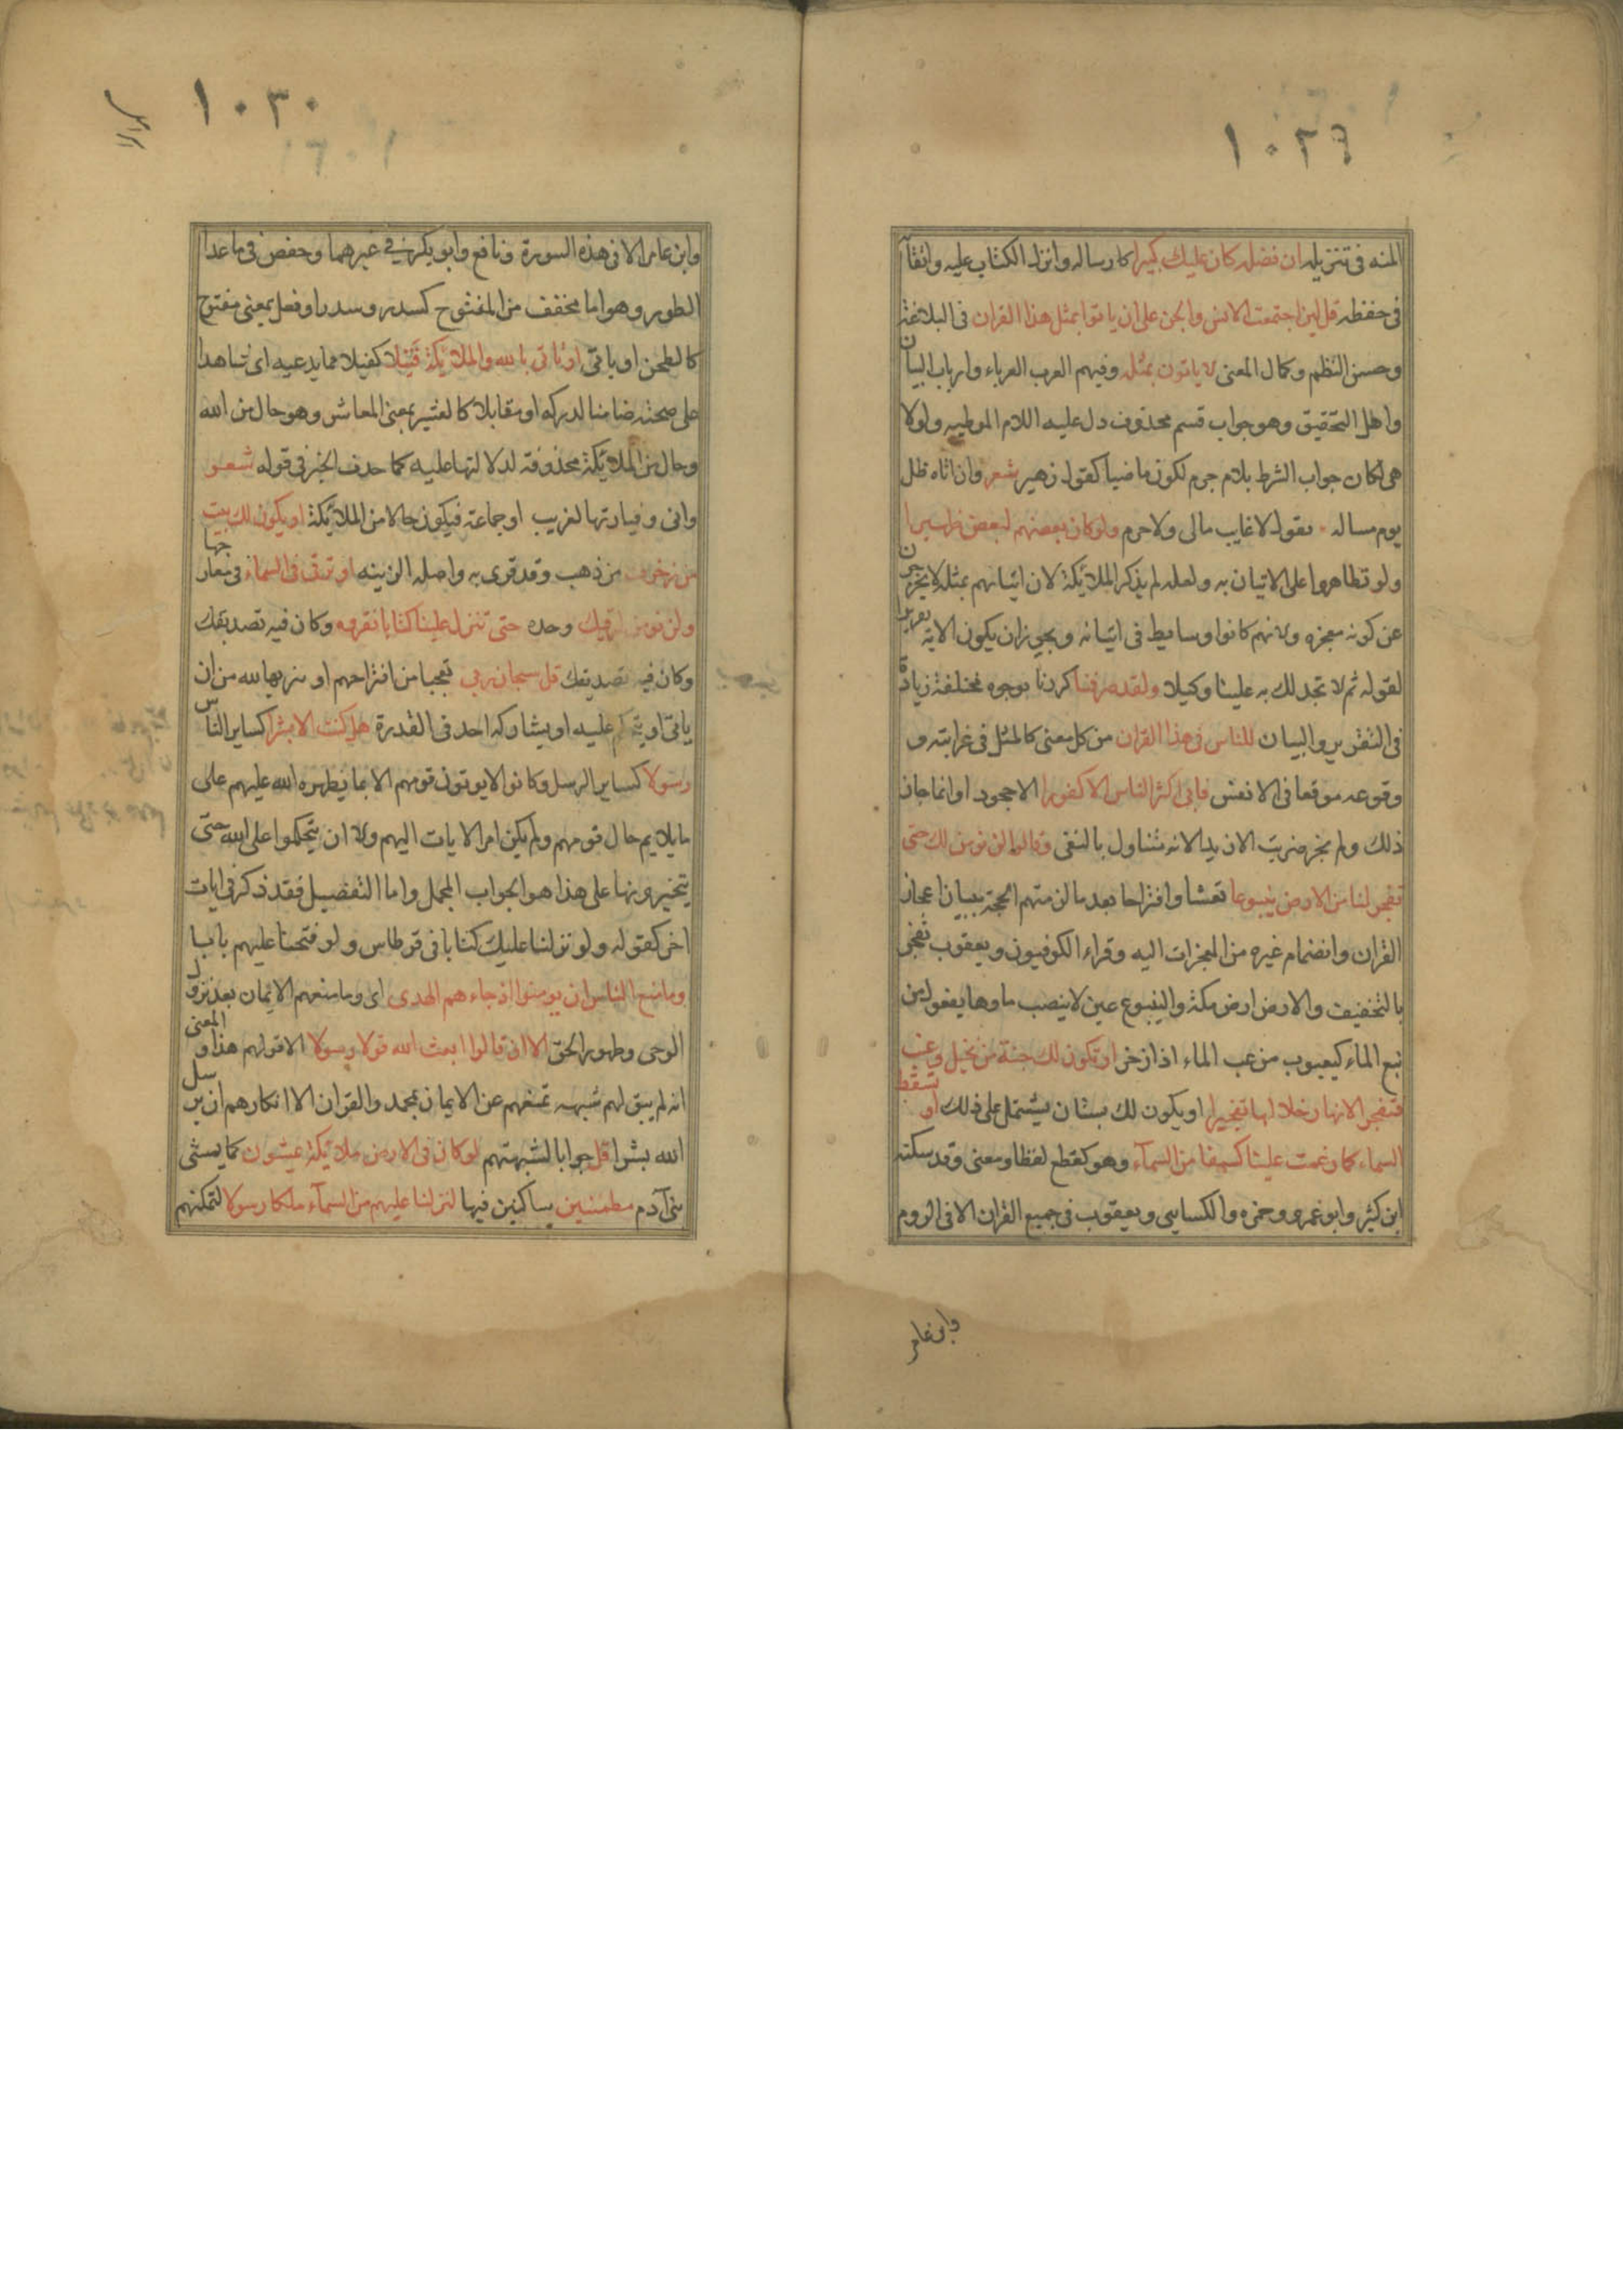 ١٠٢٩
المنه فى تنزيله ان فضله كان عليك كبيرا كارساله وانزال الكتاب عليه وابقآ
فى حفظه قل لين اجتمعت الانس والجن على ان ياتوا بمثل هذا القران فى البلاغة
وحسن النظم وكمال المعنى لا ياتون بمثله وفيهم العرب العرباء وارباب البيان
واهل التحقيق وهو جواب قسم محذوف دل عليه اللام الموطيه ولولا
هى لكان جواب الشرط بلام جرم لكون ماضيا كقول زهير شعر وان اتاه خلل
يوم مساله يقول لا غايب مالى ولا حرم ولو كان بعضهم لبعض ظهيرا
ولو تظاهروا على الاتيان به ولعله لم يذكر الملائكة لان اتيانهم بمثله لا يخرجن
عن كونه معجزه ولانهم كانوا وسايط فى اتيانه ويجوز ان يكون الايه تقريرا
لقوله ثم لا تجد لك به علينا وكيلا ولقد صرفنا كررنا بوجوه مختلفة زيادة
فى التقرير والبيان للناس فى هذا القران من كل معنى كالمثل فى غرابته و
وقوعه موقعا فى الانفس فابى اكثر الناس الا كفورا الا جحود اوانما جاز
ذلك ولم يجز ضربت الا زيدا لانه متناول بالنفى وقالوا لن نومن لك حتى
تفجر لنا من الارض ينبوعا تعنتا واقتراحا بعد ما لزمتهم الحجة ببيان اعجاز
القران وانضمام غيره من المعجزات اليه وقراء الكوفيون ويعقوب تفجر
بالتخفيف والارض ارض مكة والينبوع عين لا ينصب ماوها يفعول من
نبع الماء كيعبوب من عب الماء اذا زخر او تكون لك جنة من نخيل وعنب
فتفجر الانهار خلالها تفجيرا او يكون لك بستان يشتمل على ذلك او تسقط
السماء كما زعمت علينا كسفا من السمآء وهو كقطع لفظا ومعنى وقد سكنه
ابن كثير وابو عمرو وحمزه والكسايى ويعقوب فى جميع القران الا فى الروم
وابن عامر
١٠٣٠
وابن عامر الا فى هذه السورة ونافع وابو بكر فى غيرهما وحفص فى ما عدا
الطور وهو اما مخفف من المفتوح كسدر وسدر او فعل بمعنى مفتوح
كالطحن او ياتى او تاتى بالله والملائكة قبيلا كفيلا مما يدعيه اى شاهدا
على صحته ضامنا لدركه او مقابلا كالعشير بمعنى المعاشر وهو حال من الله
وحال من الملائكة محذوفة لدلالتها عليه كما حذف الخبر فى قوله شعر
وانى وقيار بها لغريب او جماعة فيكون حالا من الملائكة او يكون لك بيت
من زخرف من ذهب وقد قرى به واصله الزينه او ترقى فى السماء فى معارجها
ولن نومن لرقيك وحده حتى تنزل علينا كتابا نقروه وكان فيه تصديقك
وكان فيه تصديقك قل سبحان ربى تعجبا من اقتراحهم او تنزيها لله من ان
ياتى او يتحكم عليه او يشاركه احد فى القدرة هل كنت الا بشرا كساير الناس
رسولا كساير الرسل وكانوا لا يوتون قومهم الا بما يظهره الله عليهم على
ما يلايم حال قومهم ولم يكن امر الايات اليهم ولا ان يتحكموا على الله حتى
يتخيرونها على هذا هو الجواب المجمل واما التفصيل فقد ذكر فى ايات
اخر كقوله ولو نزلنا عليك كتابا فى قرطاس ولو فتحنا عليهم بابا
وما منع الناس ان يومنوا اذ جاءهم الهدى اى وما منعهم الايمان بعد نزول
الوحى وظهور الحق الا ان قالوا ابعث الله قولا رسولا الا قولهم هذا والمعنى
انه لم يبق لهم شبهه تمنعهم عن الايمان بمحمد والقران الا انكارهم ان يرسل
الله بشرا قل جوابا لشبهتهم لو كان فى الارض ملائكة يمشون كما يمشى
بنى آدم مطمئنين ساكنين فيها لنزلنا عليهم من السمآء ملكا رسولا لتمكنهم